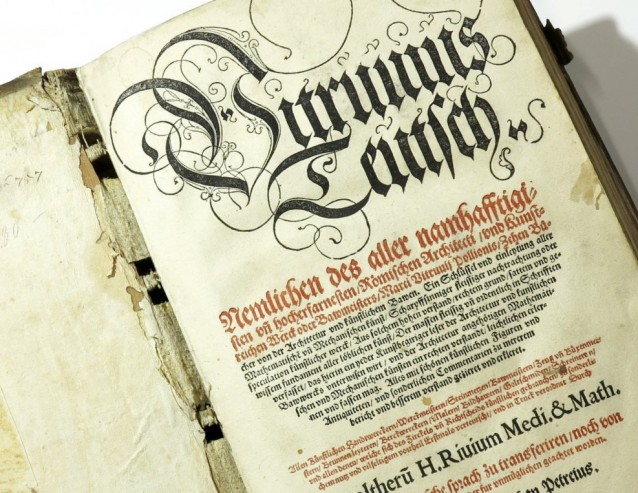 Vitruuius
Teutsch.
Nemlichen des aller namhafftigi-
sten vñ hocherfarnesten/ Römischen Architecti/ vnd Kunst-
reichen Werck oder Bawmeisters/ Marci Vitruuij Pollionis/ Zehen Bü-
cher von der Architectur vnd künstlichem Bawen. Ein Schlüssel vnd einleytung aller
Mathematischẽ vñ Mechanischen künst/ Scharpffsinniger fleissiger nachtrachtung oder
speculation künstlicher werck/ Auß solchem hohen verstand/ rechtem grund/ satten vnd ge-
wissen fundament aller löblichen künst/ Der massen fleissig vñ ordenlich in Schrifften
verfasset/ das hierin ein jeder Kunstbegiriger leser der Architectur vnd künstlichen
Bawwercks vnterwisen wirt/ vnd der Architectur angehörigen Mathemati-
schen vnd Mechanischen künsten ein rechten verstand/ leichtlichen erler-
nen vnd fassen mag. Alles mit schönen künstlichen Figuren vnd
Antiquiteten/ vnd sonderlichen Commentarien zu mererem
bericht vnd besserem verstand gezieret vnd erkleret.
Allen Künstlichen Handwerckern/ Werckmeistern/ Steinmetzen/ Bawmeistern/ Zeug vñ Büxenmei-
stern/ Brunnenleyteren/ Berckwerckern/ Malern/ Bildhawern/ Goltschmiden/ Schreineren/
vnd allen denen/ welche sich des Zirckels vñ Richtscheids künstlichen gebrauchen/ zu sonderlichem
nutz vnd vilfeltigem vortheil
H. Riuium Medi. & Math.
sprach zu transferiren/ noch von
vnmüglichen geachtet worden.
Petreius.